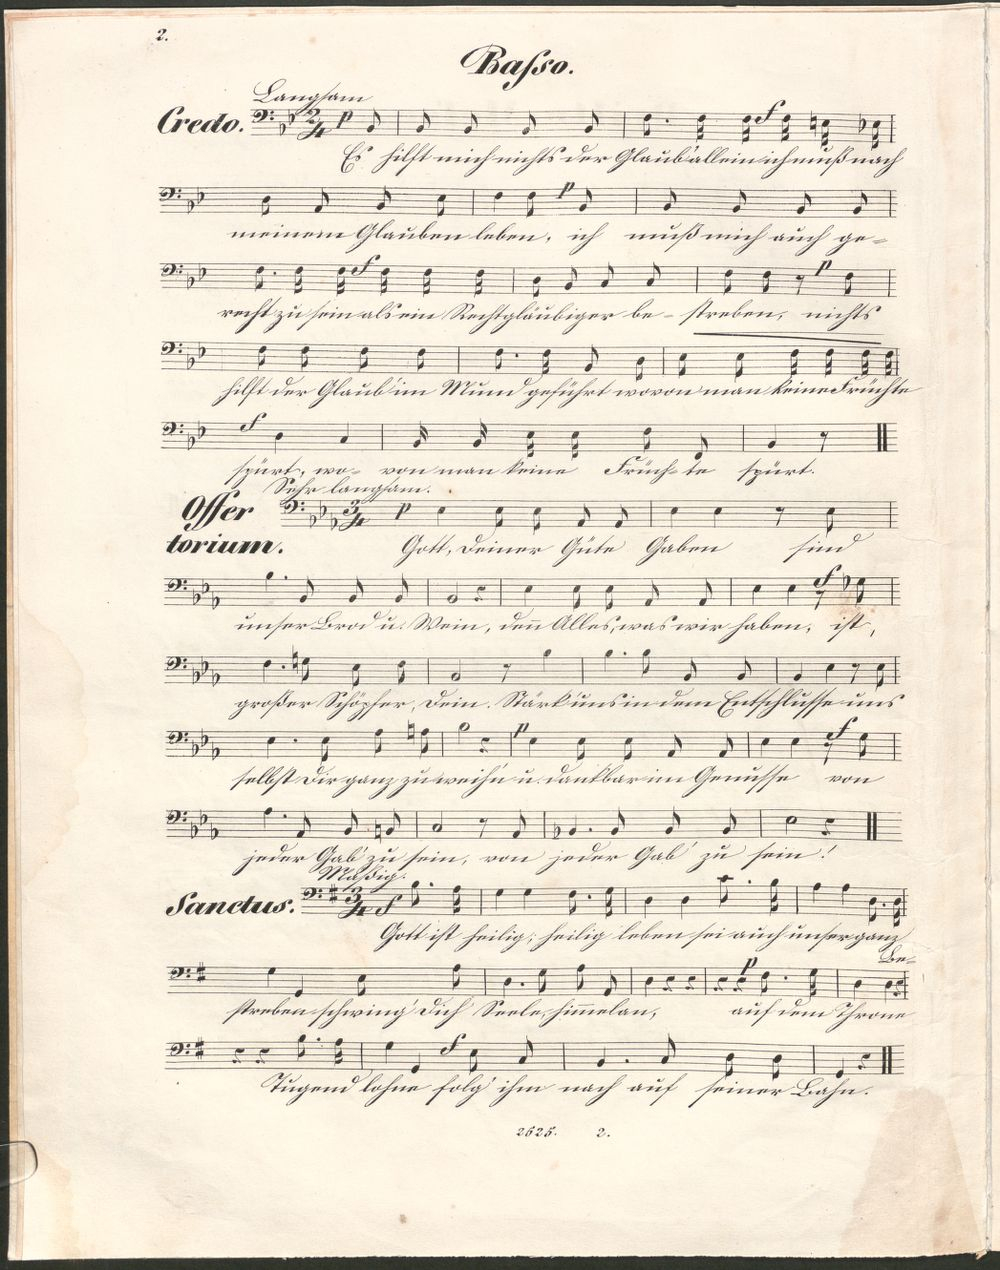 2.
Basso.
Langsam
Credo. p f
Es hilft mich nichts der Glaub' allein ich muß nach
p
meinem Glauben leben, ich muß mich auch ge-
f p
recht zu sein als ein Rechtgläubiger be- streben, nichts
hilft der Glaub' im Mund geführt wovon man keine Früchte
f
spürt, wo- von man keine Früch- te spürt.
Sehr langsam.
Offer p
torium. Gott, Deiner Güte Gaben sind
f
unser Brod u. Wein, deñ Alles, was wir haben, ist,
großer Schöpfer, Dein. Stärk' uns in dem Entschlusse uns
p f
selbst Dir ganz zu weih'n u. dankbar im Genusse von
jeder Gab' zu sein, von jeder Gab' zu sein!
Mäßig.
Sanctus. f
Gott ist heilig; heilig leben sei auch unser ganz
Be-
p
streben schwing' dich Seele him̃elan, auf dem Throne
f
Tugend lohne folg' ihm nach auf seiner Bahn.
2525. 2.